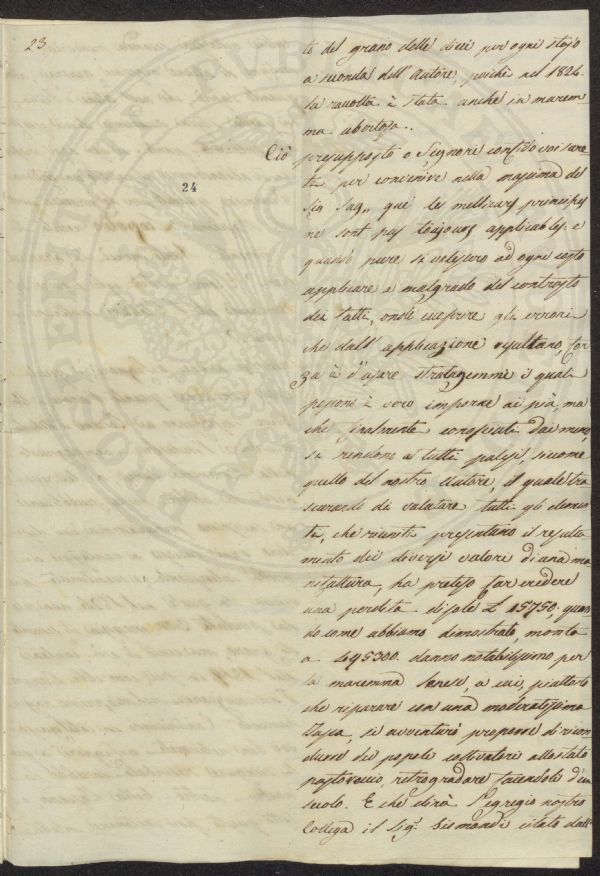 23
to del grano delle dieci per ogni stajo
a seconda dell'Autore, poichè nel 1824.
la raccolta è stata anche in marem-
ma abortosa..
Ciò presupposto o Signori confido voi sare-
te per convenire nella massima del
Sig Say, que les meilleurs principes
ne sont pas toujours applicables: e
quando pure si volessero ad ogni costo
applicare a malgrado del contrasto
dei fatti, onde cuoprire gli errori
che dall'applicazione resultano, for
za è d'usare stratagemmi i quali
possono è vero imporne ai più, ma
che finalmente conosciuti dai meno,
si rendono a tutti palesi, siccome
quello del nostro Autore, il quale tra
scurando di valutare tutti gli elemen
ti, che riuniti presentano il resulta
mento dei diversi valori di una ma
nifattura, ha preteso far credere
una perdita di sole £ 15750, quan
do come abbiamo dimostrato, monta
a 495300. danno notabilissimo per
la maremma Senese, a cui, piuttosto
che riparare con una moderatissima
Tassa, si avventurò propose di ricon
durre dei popoli coltivatori allo stato
pastoreccio, retrogradare facendole d'un
secolo. E che dirà l'egregio nostro
Collega il Sigʳ Sismondi citato dall'
24